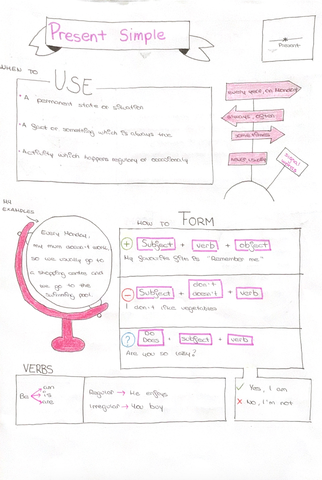 Present Simple
Present
WHEN TO USE
· A permanent state or situation
· A fact or something which is always true
· Activity which happens regulary or occasionally
every year, on Mondays
always, often
sometimes
never, usually
signal
MY EXAMPLES
Every Monday,
my mum doesn't work,
so we usually go to
a shopping centre and
we go to the
swimming pool.
HOW TO FORM
+ Subject + verb + object
My favourite film is "Remember me"
- Subject + don't doesn't + verb
I don't like vegetables
? Do Does + subject + verb
Are you so
VERBS
Be
am
is
are
Regular → He enjoys
Irregular → You buy
✓ Yes, I am
✗ No, I'm not